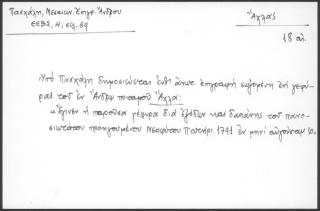 Πασχάλη, Μεσαιων. Ἐπιγρ. Ἄνδρου
ΕΕΒΣ, 4, σελ. 69
Ἄχλας
18 αἰ.
Ὑπὸ Πασχάλη δημοσιεύεται ἐπιγραφὴ ἐπὶ γεφύ-
ρας τοῦ ἐν Ἄνδρῳ ποταμοῦ Ἄχλα:
"Ἔγινεν ἡ παροῦσα γέφυρα διὰ ἐξόδων καὶ δαπάνης τοῦ πανο-
σιωτάτου προηγουμένου Νεοφύτου 1741 ἐν μηνὶ αὐγούστου